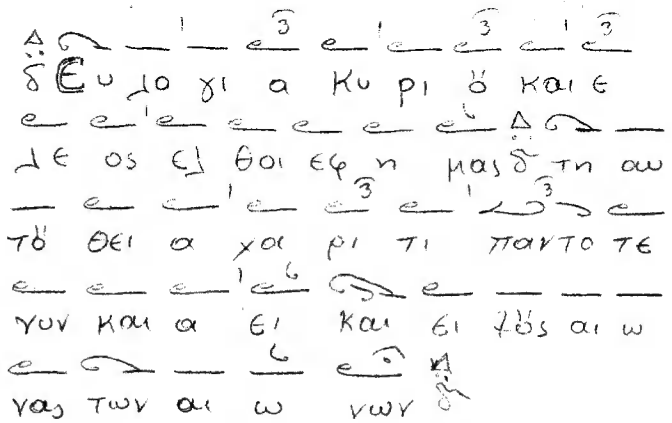 Ευ λο γι α Κυ ρι ȣ και ε
λε ος ελ θοι εφ η μας τη αυ
τȣ θει α χα ρι τι παντο τε
νυν και α ει και ει τȣς αι ω
νας των αι ω νων